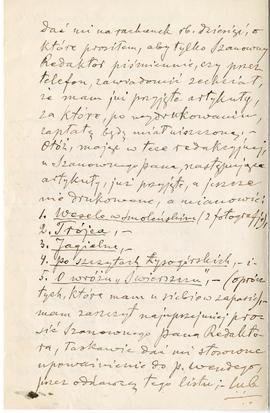 dać mi na rachunek rb. dziesięć, o
które prosiłem, aby tylko Szanowny
Redaktor piśmiennie, czy przez
telefon, zawiadomić zechciał,
że mam już przyjęte artykuły,
za które, po wydrukowaniu,
zapłatę będę miał uiszczoną. –
Otóż, mając w tece redakcyjnej
u Szanownego Pana, następujące
artykuły, już przyjęte, a jeszcze
nie drukowane, a mianowicie:
1. Wesele w Smoleńskim (2 fotografje),
2. Trójca, –
3. Jagielne, –
4. Po szczytach Łysogórskich, – i
5. O wróżu „Świerszczu", – (oprócz
tych, które mam u siebie w zapasie)
mam zaszczyt najuprzejmiej pro-
sić Szanownego Pana Redakto-
ra, łaskawie dać mi stosowne
upoważnienie do p. Wendego,
przez oddawcę tego listu; – lub